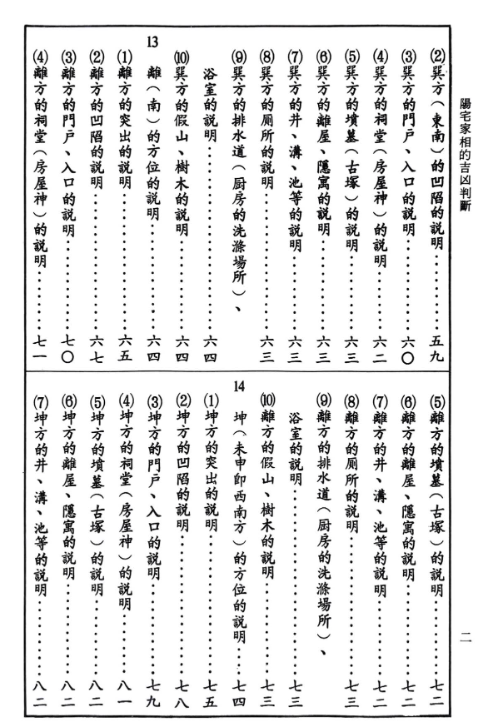 陽宅家相的吉凶判斷
(2)巽方(東南)的凹陷的說明………五九
(3)巽方的門戶、入口的說明………六〇
(4)巽方的祠堂(房屋神)的說明………六二
(5)巽方的墳墓(古塚)的說明………六三
(6)巽方的離屋、隱寓的說明………六三
(7)巽方的井、溝、池等的說明………六三
(8)巽方的厠所的說明………六三
(9)巽方的排水道(厨房的洗滌場所)、
浴室的說明………六四
(10)巽方的假山、樹木的說明………六四
13 離(南)的方位的說明………六四
(1)離方的突出的說明………六五
(2)離方的凹陷的說明………六七
(3)離方的門戶、入口的說明………七〇
(4)離方的祠堂(房屋神)的說明………七一
(5)離方的墳墓(古塚)的說明………七二
(6)離方的離屋、隱寓的說明………七二
(7)離方的井、溝、池等的說明………七二
(8)離方的厠所的說明………七三
(9)離方的排水道(厨房的洗滌場所)、
浴室的說明………七三
(10)離方的假山、樹木的說明………七三
14 坤(未申即西南方)的方位的說明………七四
(1)坤方的突出的說明………七五
(2)坤方的凹陷的說明………七八
(3)坤方的門戶、入口的說明………七九
(4)坤方的祠堂(房屋神)的說明………八一
(5)坤方的墳墓(古塚)的說明………八二
(6)坤方的離屋、隱寓的說明………八二
(7)坤方的井、溝、池等的說明………八二
二